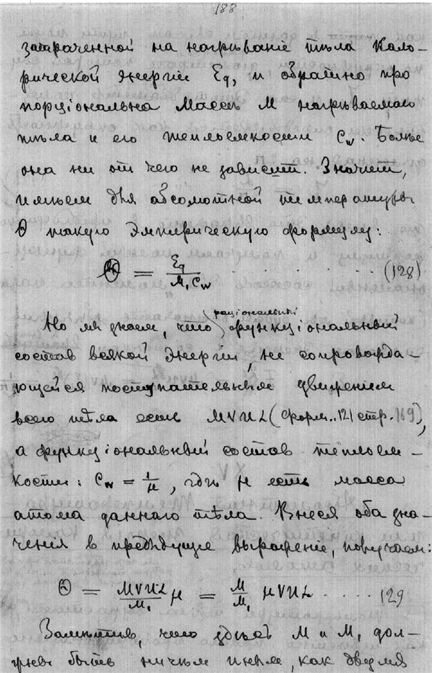 188
затраченной на нагриванiе тѣла Кало-
рической энергiи Eq, и обратно про
порцiональна Массѣ M нагриваемаго
тѣла и его теплоемкости Cw. Болѣе
она ни от чего не зависит. Значит,
имѣем для абсолютной температуры
Θ такую Эмпирическую формулу:
Θ = Eq / M₁Cw · · · · · · · · (128)
рацiональный
Но мы знаем, что функцiональный
состав всякой Энергiи, не сопровожда-
ющейся поступательным движенiем
всего тѣла есть MVUL (форм. 121 стр. 169),
а функцiональный состав теплоем-
кости: Cw = 1/μ, гдѣ μ есть масса
атома даннаго тѣла. Внеся оба зна-
ченiя в предъидущее выраженiе, получаем:
Θ = MVUL/M₁ μ = M/M₁ μVUL · · · · 129
Замѣтив, что здѣсь M и M₁ дол-
жны быть ничѣм иным, как двумя